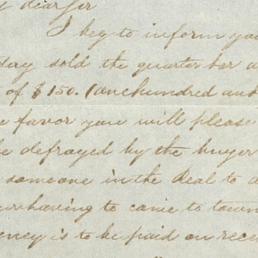 dear Sir
I beg to inform you
day sold the quarter
of $150. (one hundred and
favor you will please
be defrayed by the buyer
someone in the deal to
having to come to town
is to be paid on